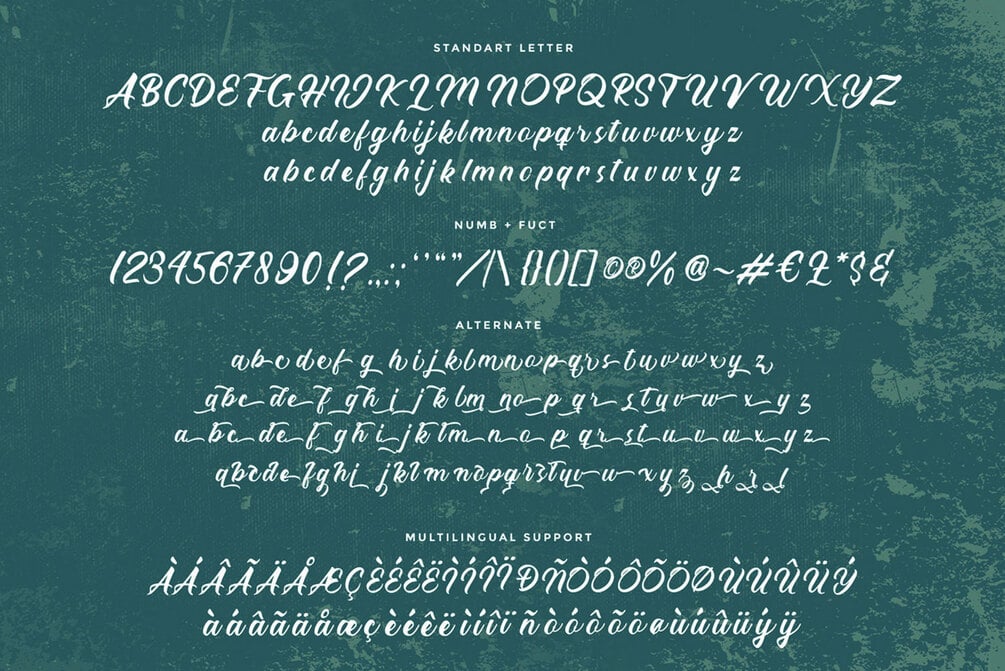 STANDART LETTER
ABCDEFGHIJKLMNOPQRSTUVWXYZ
abcdefghijklmnopqrstuvwxyz
abcdefghijklmnopqrstuvwxyz
NUMB + FUCT
1234567890!?.,:;‘’“”/|\{}()[]©®%@~#€£*$&
ALTERNATE
abcdefghijklmnopqrstuvwxyz
abcdefghijklmnopqrstuvwxyz
abcdefghijklmnopqrstuvwxyz
abcdefghijklmnopqrstuvwxyz
MULTILINGUAL SUPPORT
ÀÁÂÃÄÅÆÇÈÉÊËÌÍÎÏÐÑÒÓÔÕÖØÙÚÛÜÝ
àáâãäåæçèéêëìíîïñòóôõöøùúûüýÿ